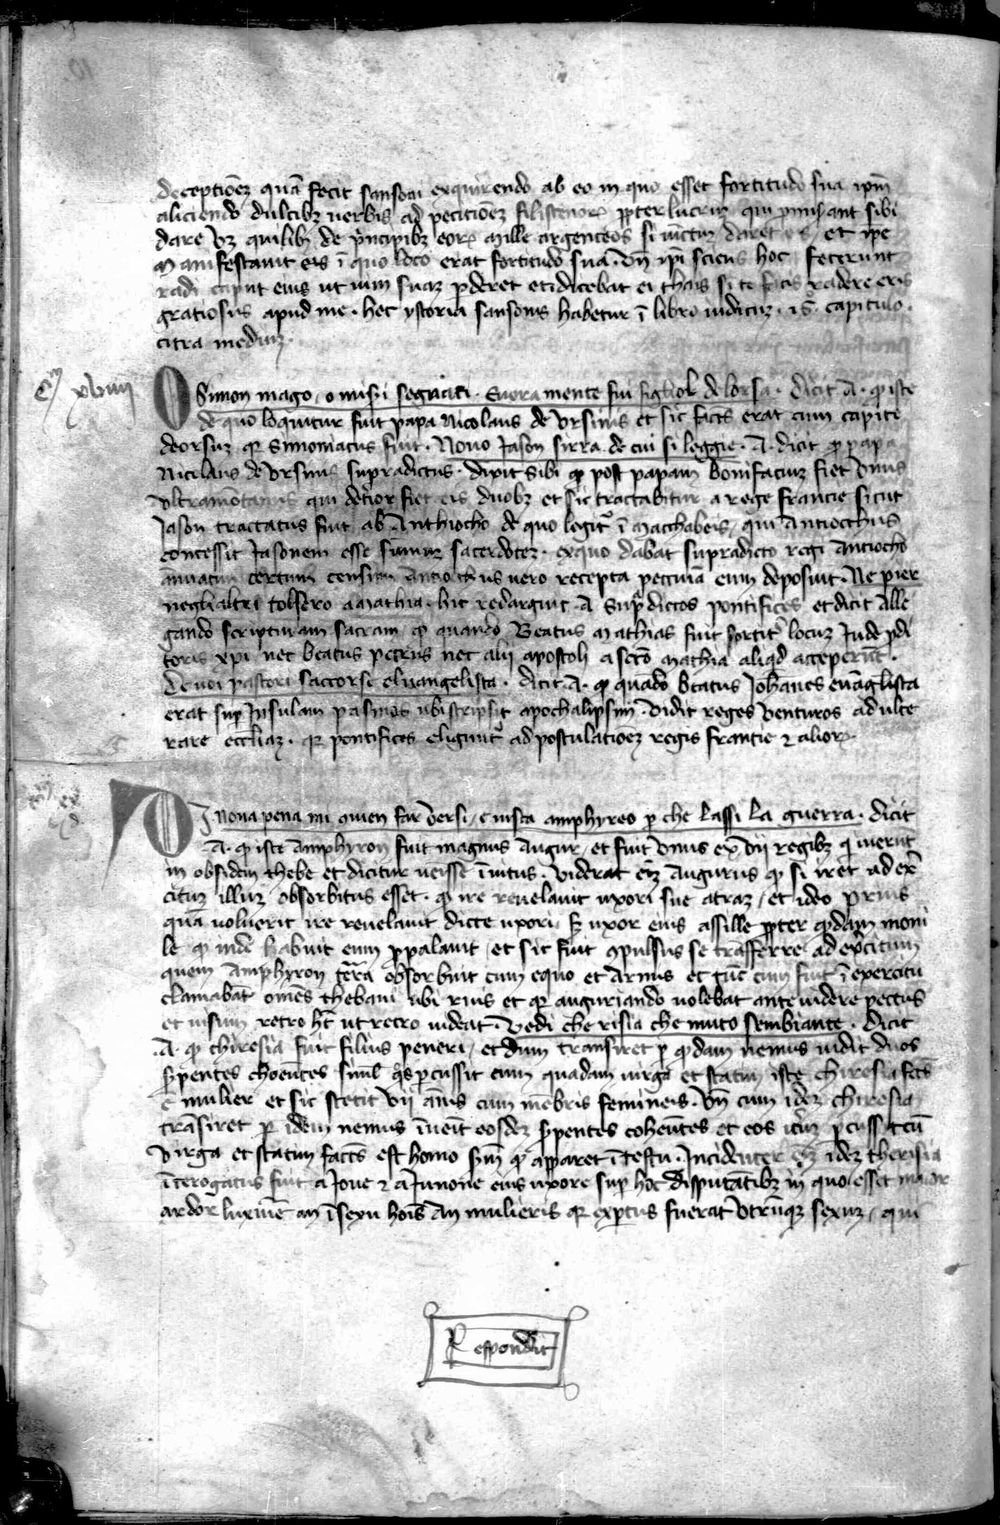 deceptiōeʒ quā fecit sansoni exquirendo ab eo in quo esset fortitudo sua ipm̄
aliciendo dulcibʒ uerbis ad peticiōeʒ filisteorꝝ ꝓpter lucrum qui ꝓmiserant sibi
dare vʒ quilibʒ de pͥncipibʒ eorꝝ mille argenteos si uictum daret eis et ipse
manifestauit eis ī quo loco erat fortitudo sua. vn̄ ipi sciens hoc fecerunt
radi caput eius ut uim suaʒ ꝑderet et dicebat ei thais si te facis radere eris
gratiosus apud me. hec ystoria sansonis habetur ī libro iudicum. 16. capitulo.
citra mediuʒ.
Cm̄ xviiii
O Simon mago, o misͥi segriaci. Suora mente fui figliol de lorsa. dicit A. ꝙ iste
de quo loquitur fuit papa Nicolaus de Vrsinis et sic factus erat cum capite
deorsuʒ qꝛ simoniacus fuit. Nouo Jason sirra de cui si leggie. A. dicit ꝙ papa
Nicolaus de Vrsinis supradictus. dixit sibi ꝙ post papam bonifaciuʒ fiet vnus
vltramontanus qui deterior fiet eis duobʒ et sic tractabitur a rege francie sicut
Jason tractatus fuit ab Anthiocho de quo legitᷣ ī machabeis, qui Antiochus
concessit Jasonem esse sūmuʒ sacerdoteʒ. exquo dabat supradicto regi Antiocho
annuatim certum censum Antiochus uero recepta pecunia eum deposuit. Ne pier
negli altri tolsero a mathia. hic redarguit. A. supͣ dictos pontifices et dicit alle
gando scripturam sacram ꝙ quando Beatus Mathias fuit sortitᷣ locuʒ Jude ꝓdi
toris xp̄i nec beatus petrus nec alii apostoli a sco Mathia aliqͥd acceperūt.
De uoi pastori saccorse eluangelista. dicit. A. ꝙ quādo beatus Johannes euāglista
erat suꝑ Insulam pasmos ubi scripsit apochalipsim vidit reges venturos adulte
rare eccliaʒ. qꝛ pontifices eligunt᷑ ad postulatiōeʒ regis francie ⁊ aliorꝝ.
Cm̄ xx
DJ noua pena mi ꝯuien far versi, e insta amphyreo ꝑ che lassi la guerra. dicit
A. ꝙ iste Amphyron fuit magnus Augur, et fuit vnus ex vii regibʒ qͥ iuerūt
in obsidem thebe et dicitur iuisse īuitus. viderat em̄ Augurius ꝙ si iret ad ex̄
citum illuʒ obsorbitus esset. qͥ ire reuelauit uxori sue atraʒ, et ideo prius
quā uoluerit ire reuelauit dicte uxori, sʒ uxor eius assille ꝓpter qͦdam moni
le ꝙ inde habuit eum ꝓpalauit, et sic fuit ꝯpulsus se trāsferre ad ex̄citum
quem Amphyron terra obsorbuit cum equo et armis et tūc cum fuit ī exercitu
clamabāt omēs thebani ubi ruis et qꝛ auguriando uolebat anteuidere pectus
et uisum retro ht̄ ut retro uideat. Vedi che risia che muto sembiante. dicit
A. ꝙ chiresia fuit filius peneri, et dum transiret ꝑ qͦdam nemus uidit duos
ẜpentes choeuntes siml̄ qͦs ꝑcussit cum quadam uirga et statim iste chiresia fcūs
ē mulier et sic stetit vii ānis cum mēbris femineis. Vn̄ cum ideʒ chiresia
trāsiret ꝑ idem nemus īuenit eosdeʒ ẜpentes coheūtes et eos iteʒ ꝑcussit cū
virga et statim factus est homo sicut ꝙ apparet ī testu. Incidenter em̄ ideʒ theresia
īterogatus fuit a Joue ⁊ a Junone eius uxore suꝑ hoc disputātibʒ in quo esset maior
ardor luxurie an ī sexu hoīs an mulieris qꝛ exꝑtus fuerat vtrūqʒ sexuʒ, qui
Respondit